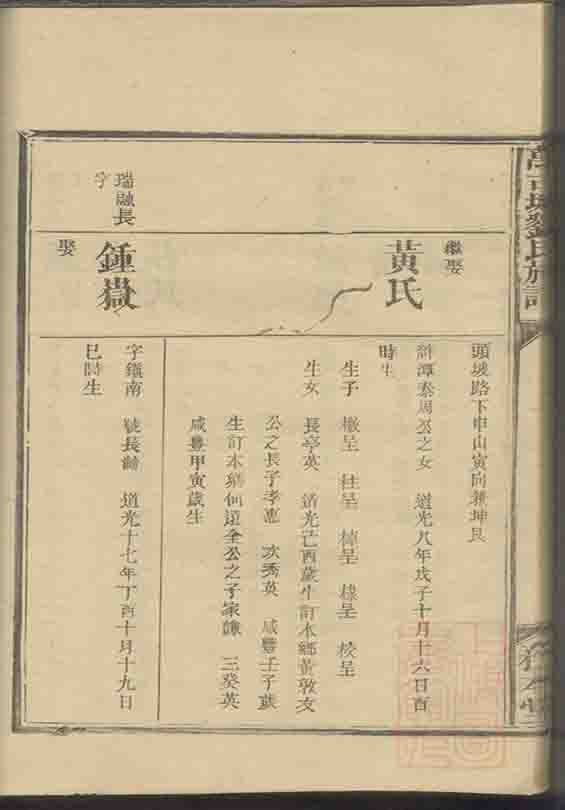 劉氏族
頭坡路下申山寅向兼坤艮
繼娶
黃氏
潭泰周公之女 道光八年戊子十月十六日酉
時生
生子 檄呈 柱呈 棹呈 橡呈 校呈
生女 長亭英 道光己酉歲生訂本鄉黃敦友
公之長子孝惠 次秀英 咸豐壬子歲
生訂本鄉何遠全公之子家謙 三癸英
咸豐甲寅歲生
瑞融長
子
鍾嶽
字鎮南 號長齡 道光十七年丁酉十月十九日
巳時生
娶